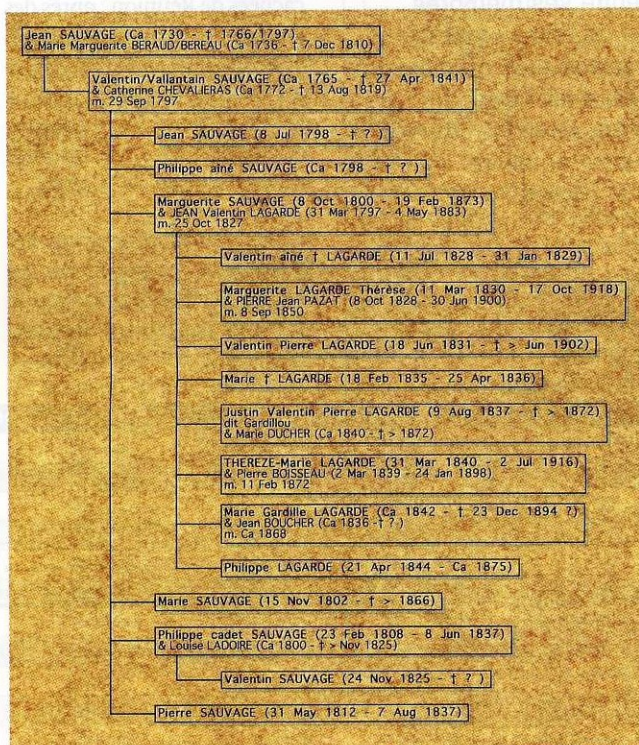 Jean SAUVAGE (Ca 1730 - † 1766/1797)
& Marie Marguerite BERAUD/BEREAU (Ca 1736 - † 7 Dec 1810)
Valentin/Vallantain SAUVAGE (Ca 1765 - † 27 Apr 1841)
& Catherine CHEVALIERAS (Ca 1772 - † 13 Aug 1819)
m. 29 Sep 1797
Jean SAUVAGE (8 Jul 1798 - † ? )
Philippe aîné SAUVAGE (Ca 1798 - † ? )
Marguerite SAUVAGE (8 Oct 1800 - 19 Feb 1873)
& JEAN Valentin LAGARDE (31 Mar 1797 - 4 May 1883)
m. 25 Oct 1827
Valentin aîné † LAGARDE (11 Jul 1828 - 31 Jan 1829)
Marguerite LAGARDE Thérèse (11 Mar 1830 - 17 Oct 1918)
& PIERRE Jean PAZAT (8 Oct 1828 - 30 Jun 1900)
m. 8 Sep 1850
Valentin Pierre LAGARDE (18 Jun 1831 - † > Jun 1902)
Marie † LAGARDE (18 Feb 1835 - 25 Apr 1836)
Justin Valentin Pierre LAGARDE (9 Aug 1837 - † > 1872)
dit Gardillou
& Marie DUCHER (Ca 1840 - † > 1872)
THEREZE-Marie LAGARDE (31 Mar 1840 - 2 Jul 1916)
& Pierre BOISSEAU (2 Mar 1839 - 24 Jan 1898)
m. 11 Feb 1872
Marie Gardille LAGARDE (Ca 1842 - † 23 Dec 1894 ?)
& Jean BOUCHER (Ca 1836 - † ? )
m. Ca 1868
Philippe LAGARDE (21 Apr 1844 - Ca 1875)
Marie SAUVAGE (15 Nov 1802 - † > 1866)
Philippe cadet SAUVAGE (23 Feb 1808 - 8 Jun 1837)
& Louise LADOIRE (Ca 1800 - † > Nov 1825)
Valentin SAUVAGE (24 Nov 1825 - † ? )
Pierre SAUVAGE (31 May 1812 - 7 Aug 1837)